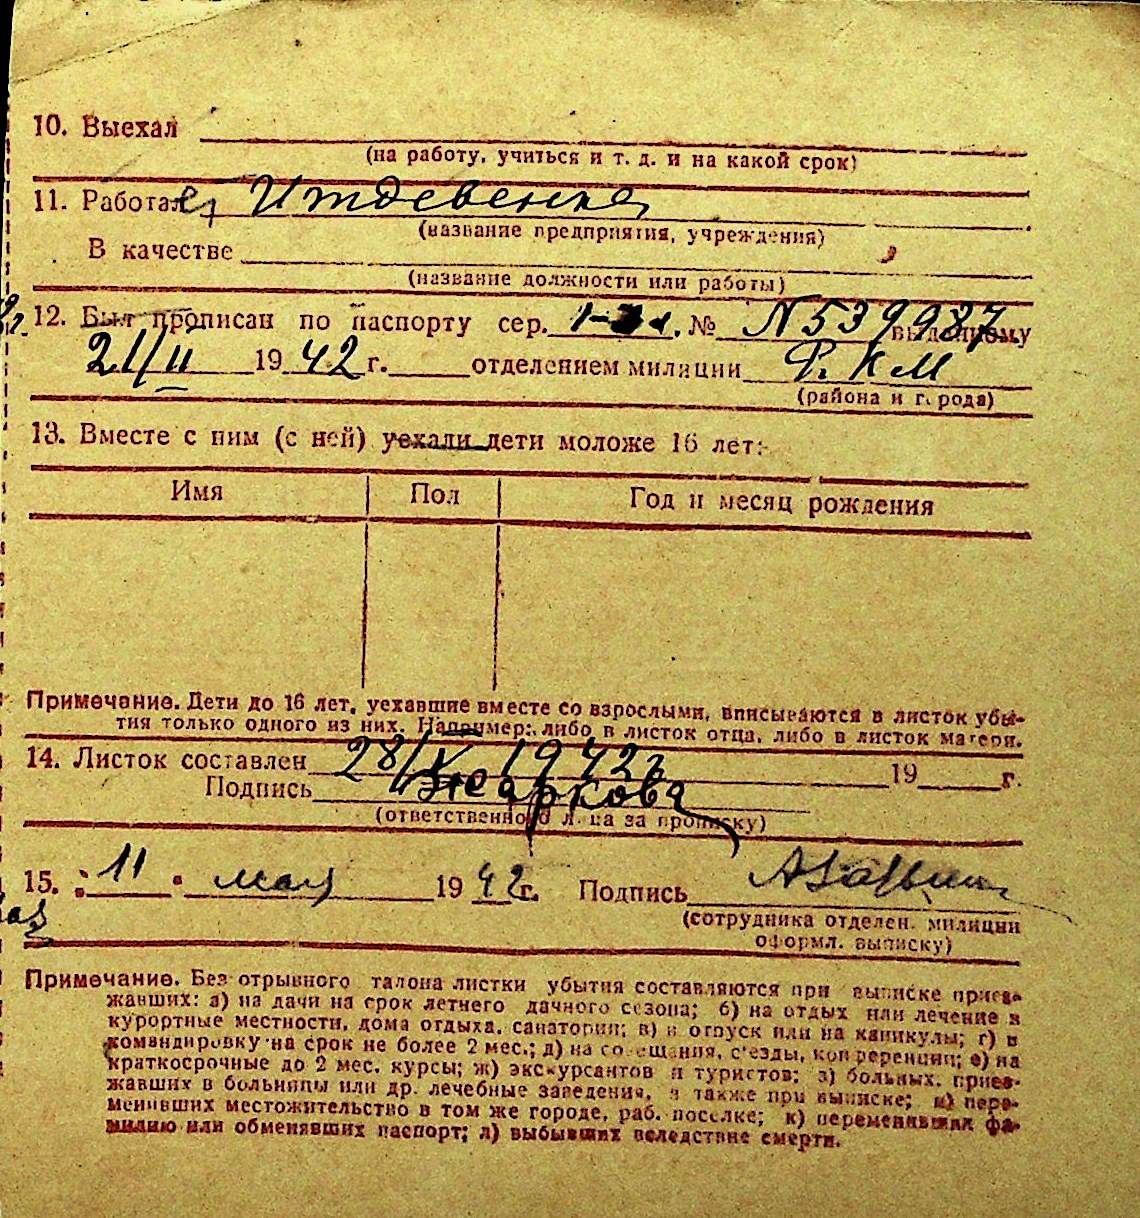 10. Выехал
(на работу, учиться и т. д. и на какой срок)
11. Работает Иждевенка
(название предприятия, учреждения)
В качестве
(название должности или работы)
12. Был прописан по паспорту сер. № N539987 выданному
21/II 1942 г. отделением милиции Р. К М
(района и города)
13. Вместе с ним (с ней) уехали дети моложе 16 лет:
Имя Пол Год и месяц рождения
Примечание. Дети до 16 лет, уехавшие вместе со взрослыми, вписываются в листок убы-
тия только одного из них. Например: либо в листок отца, либо в листок матери.
14. Листок составлен 28/V 1942г 19 г.
Подпись Жаркова
(ответственного лица за прописку)
15. "11" мая 1942г. Подпись
(сотрудника отделен. милиции
оформл. выписку)
Примечание. Без отрывного талона листки убытия составляются при выписке приез-
жавших: а) на дачи на срок летнего дачного сезона; б) на отдых или лечение в
курортные местности, дома отдыха, санатории; в) в отпуск или на каникулы; г) в
командировку на срок не более 2 мес.; д) на совещания, с'езды, конференции; е) на
краткосрочные до 2 мес. курсы; ж) экскурсантов и туристов; з) больных, приез-
жавших в больницы или др. лечебные заведения, а также при выписке; и) пере-
менивших местожительство в том же городе, раб. поселке; к) переменивших фа-
милию или обменявших паспорт; л) выбывших вследствие смерти.